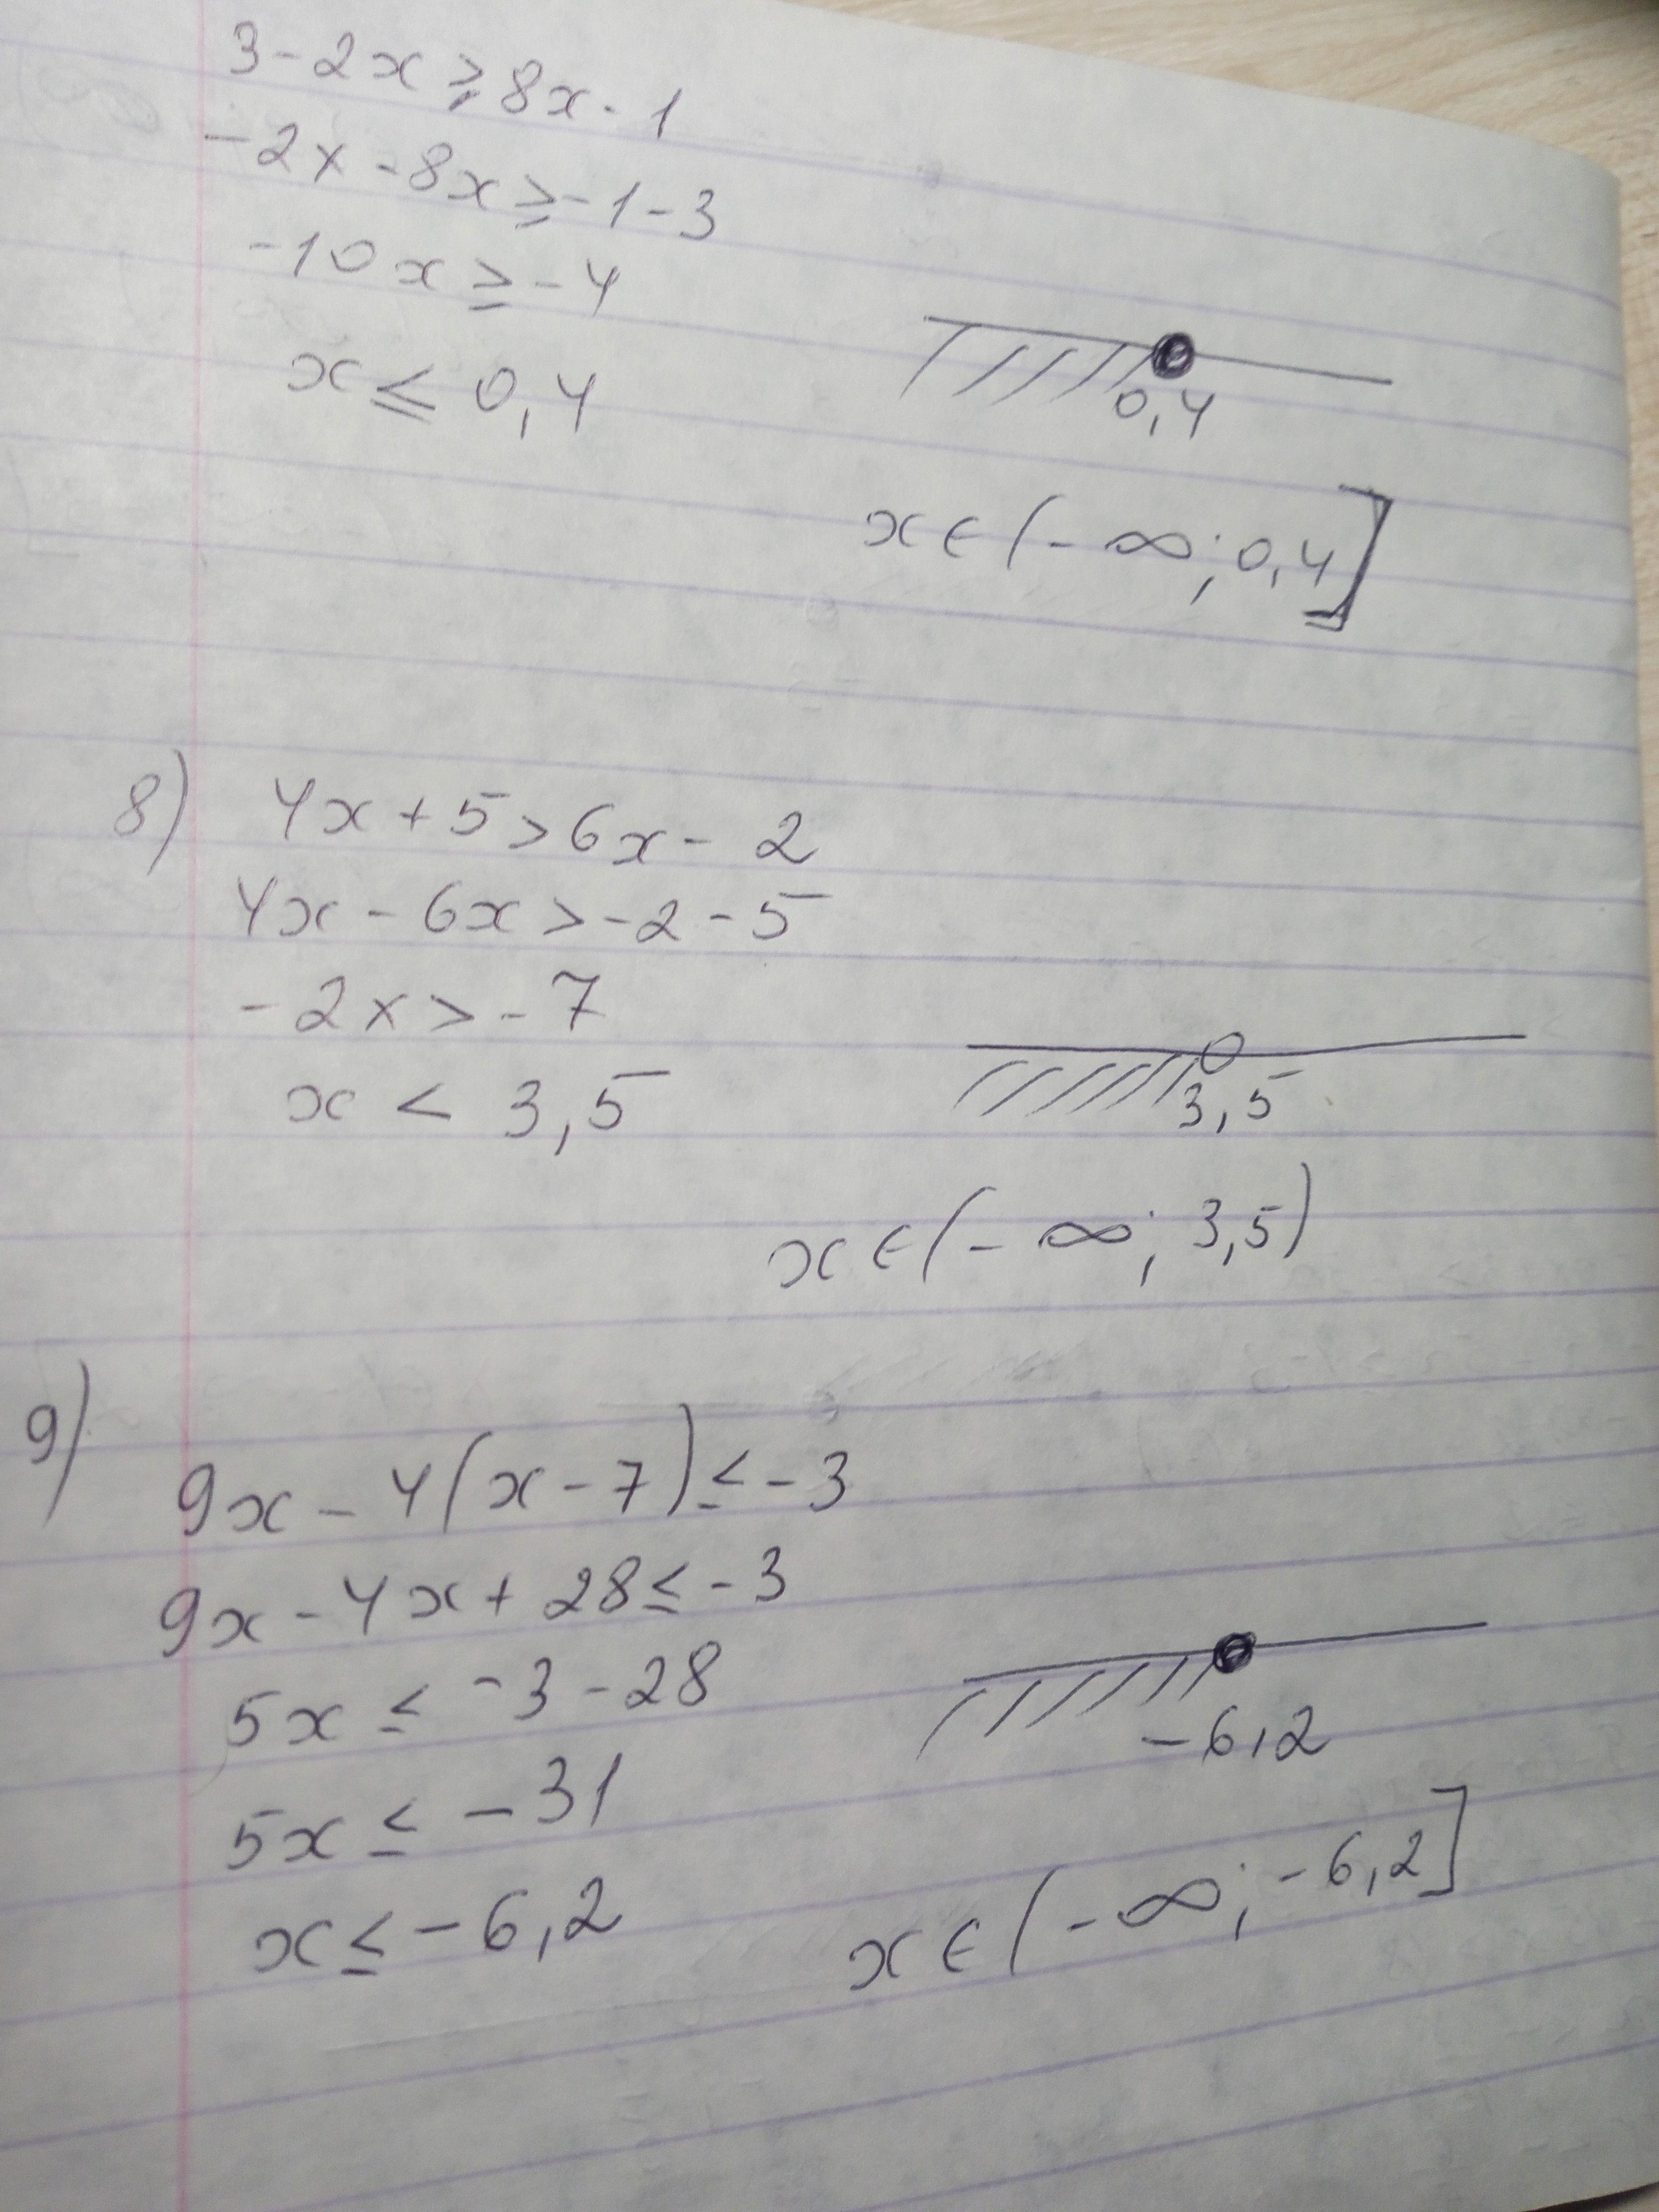 3-2x≥8x-1
-2x-8x≥-1-3
-10x≥-4
x≤0,4
0,4
x∈(-∞;0,4]
8) 4x+5>6x-2
4x-6x>-2-5
-2x>-7
x<3,5
3,5
x∈(-∞;3,5)
9)
9x-4(x-7)≤-3
9x-4x+28≤-3
5x≤-3-28
5x≤-31
x≤-6,2
-6,2
x∈(-∞;-6,2]